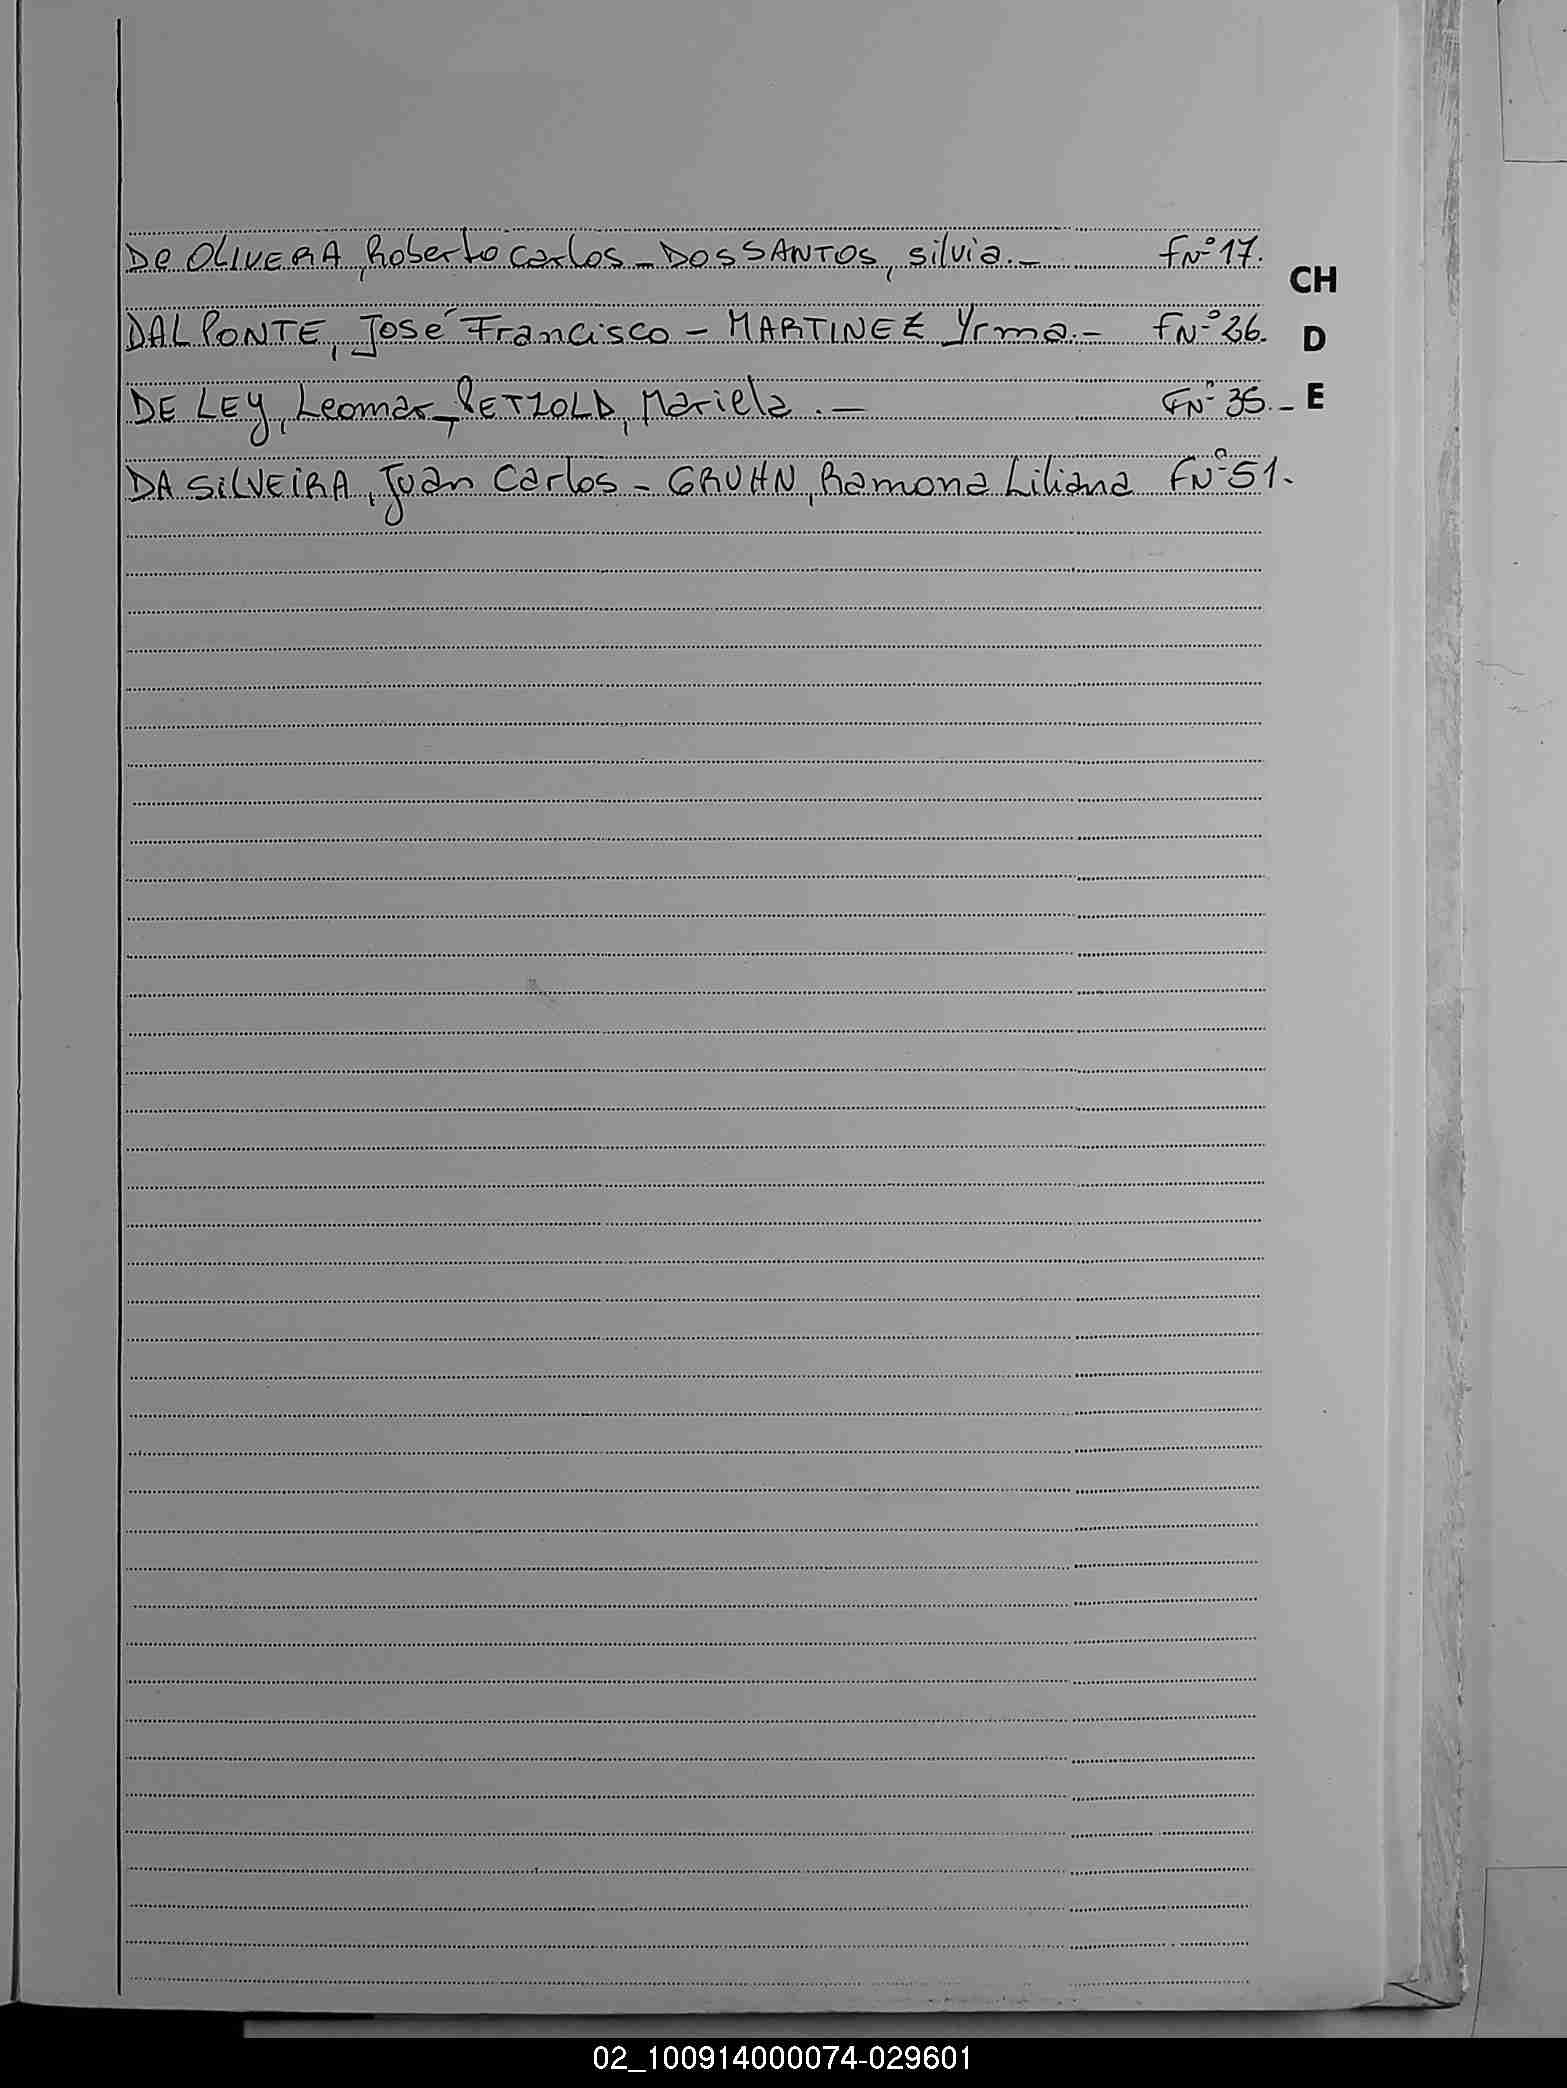 DE OLIVERA, Roberto Carlos - DOS SANTOS, silvia.- FNº 17.
CH
DAL PONTE, José Francisco - MARTINEZ Yrma.- FNº 36.
D
DE LEY, Leomar - PETZOLD, Mariela.- FNº 35.-
E
DA SILVEIRA, Juan Carlos - GRUHN, Ramona Liliana FNº 51.
02_100914000074-029601